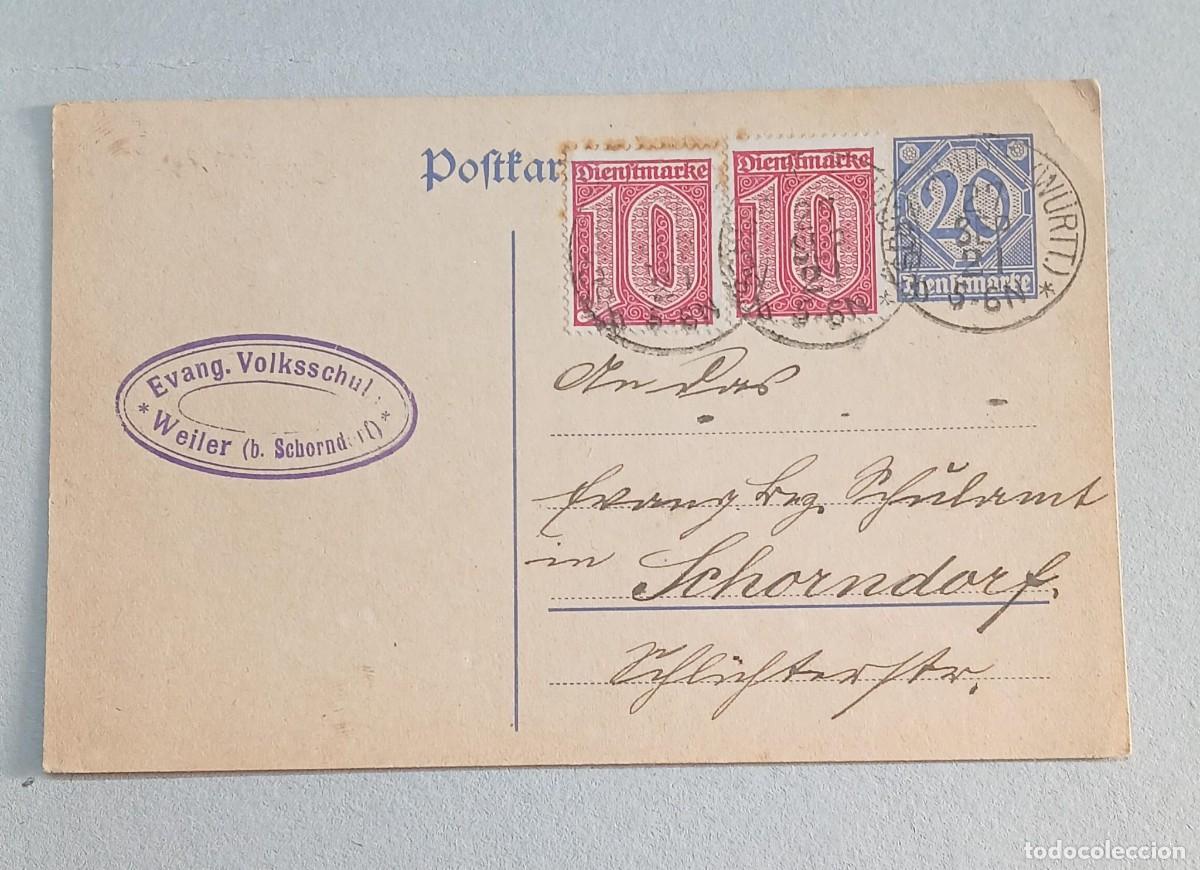 Postkar
Dienstmarke
10
Dienstmarke
10
20
Dienstmarke
(WÜRTT.) *
21
5-6N
5-6N
Evang. Volksschul
* Weiler (b. Schorndorf) *
An das
Evang. Bez. Schulamt
in Schorndorf.
Schlichterstr.
todocoleccion